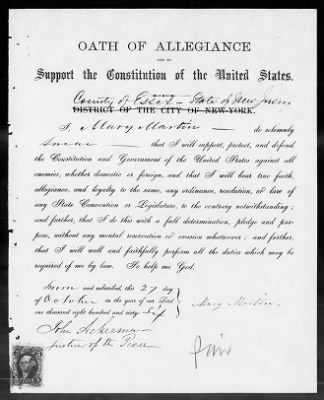 OATH OF ALLEGIANCE
AND TO
Support the Constitution of the United States.
County of Essex – State of New Jersey
DISTRICT OF THE CITY OF NEW-YORK.
I, Mary Martin do solemnly
swear that I will support, protect, and defend
the Constitution and Government of the United States against all
enemies, whether domestic or foreign, and that I will bear true faith,
allegiance, and loyalty to the same, any ordinance, resolution, or law of
any State Convention or Legislature, to the contrary notwithstanding;
and further, that I do this with a full determination, pledge and pur-
pose, without any mental reservation or evasion whatsoever; and further,
that I will well and faithfully perform all the duties which may be
required of me by law. So help me God.
Sworn and subscribed, this 27 day
of October in the year of our Lord
one thousand eight hundred and sixty-six
Mary Martin
John Ackerman
Justice of the Peace